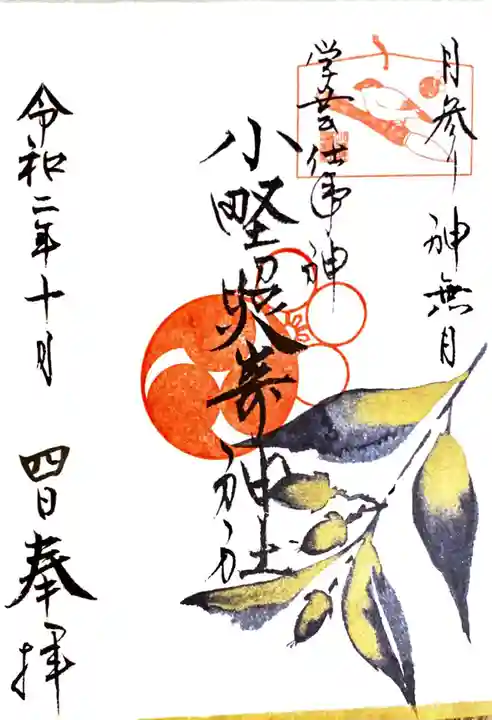 月参り 神無月
学芸仕事神
小野照崎神社
令和二年十月 四日 奉拝